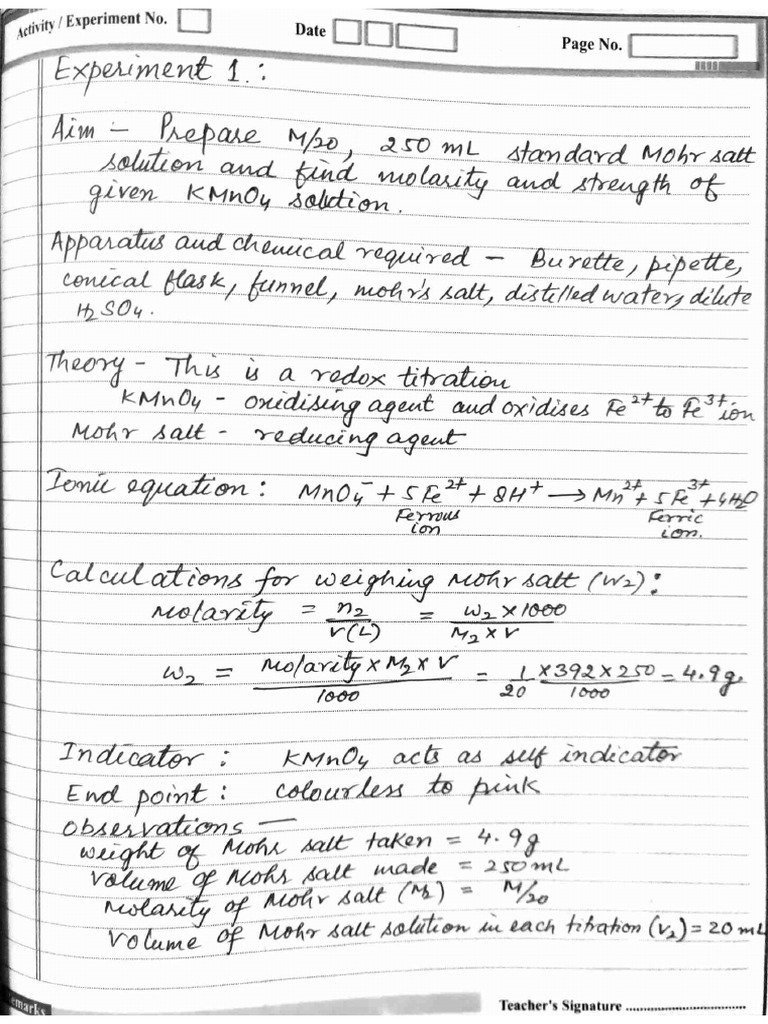 Activity / Experiment No.
Date
Page No.
Experiment 1.:
Aim - Prepare M/20, 250 mL standard Mohr salt
solution and find molarity and strength of
given KMnO4 solution.
Apparatus and chemical required - Burette, pipette,
conical flask, funnel, mohr's salt, distilled water, dilute
H2SO4.
Theory - This is a redox titration
KMnO4 - oxidising agent and oxidises Fe²⁺ to Fe³⁺ ion
Mohr salt - reducing agent
Ionic equation : MnO4⁻ + 5Fe²⁺ + 8H⁺ → Mn²⁺ + 5Fe³⁺ + 4H2O
Ferrous ion Ferric ion.
Calculations for weighing Mohr salt (W2) :
Molarity = n2/V(L) = W2 × 1000/M2 × V
W2 = Molarity × M2 × V/1000 = 1/20 × 392 × 250/1000 = 4.9g.
Indicator : KMnO4 acts as self indicator
End point : colourless to pink
Observations —
weight of Mohr salt taken = 4.9g
Volume of Mohr salt made = 250 mL
Molarity of Mohr salt (M2) = M/20
Volume of Mohr salt solution in each titration (V2) = 20 mL
Teacher's Signature